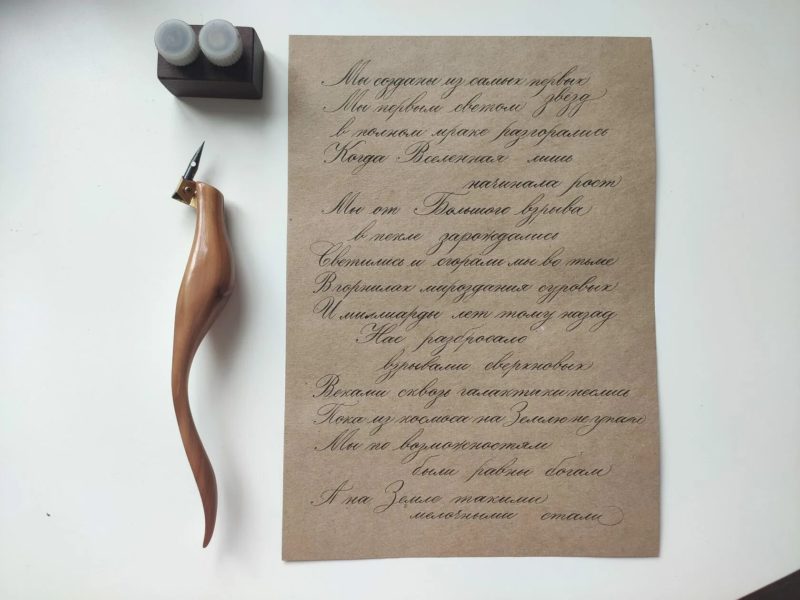 Мы созданы из самых первых
звезд
Мы первым светом
в полном мраке разгорались
Когда Вселенная лишь
начинала рост
Мы от Большого взрыва
в пекле зарождались
Светились и сгорали мы во тьме
В горнилах мироздания суровых
И миллиарды лет тому назад
Нас разбросало
взрывами сверхновых
Веками сквозь галактики неслись
Пока из космоса на Землю не упали
Мы по возможностям
были равны богам
А на Земле такими
мелочными стали